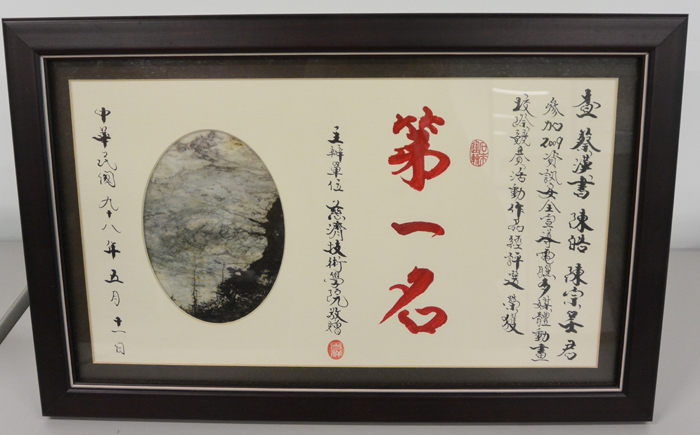 查 蔡漢書 陳皓 陳宗 君
參加2009資訊安全宣導電腦多媒體動畫
校際競賽活動作品經評選 榮獲
第一名
主辦單位 慈濟技術學院敬贈
中華民國九十八年五月十一日